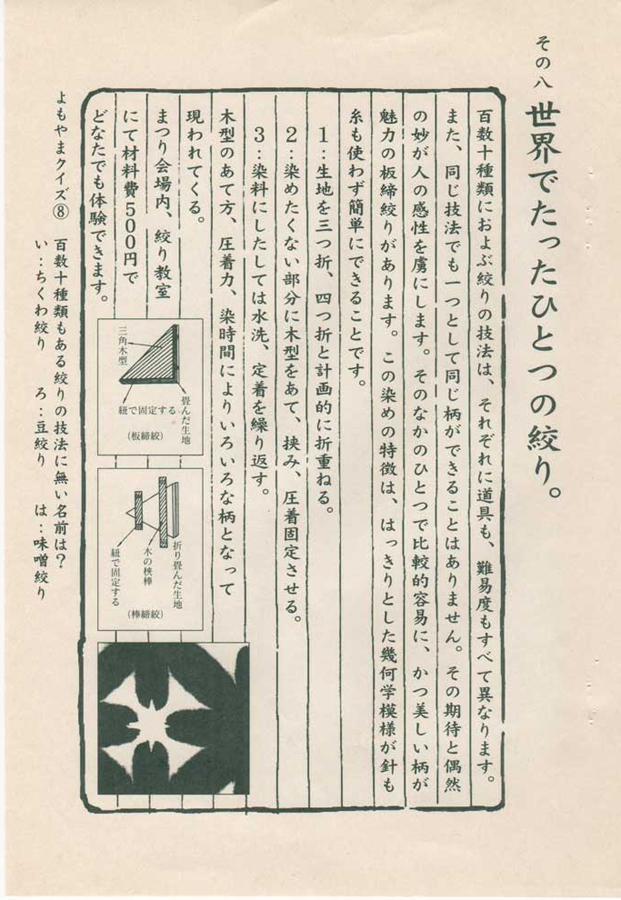 その八 世界でたったひとつの絞り。
百数十種類におよぶ絞りの技法は、それぞれに道具も、難易度もすべて異なります。
また、同じ技法でも一つとして同じ柄ができることはありません。その期待と偶然
の妙が人の感性を虜にします。そのなかのひとつで比較的容易に、かつ美しい柄が
魅力の板締絞りがあります。この染めの特徴は、はっきりとした幾何学模様が針も
糸も使わず簡単にできることです。
1：生地を三つ折、四つ折と計画的に折重ねる。
2：染めたくない部分に木型をあて、挟み、圧着固定させる。
3：染料にしたしては水洗、定着を繰り返す。
木型のあて方、圧着力、染時間によりいろいろな柄となって
現われてくる。
まつり会場内、絞り教室
にて材料費500円で
どなたでも体験できます。
三角木型
畳んだ生地
紐で固定する
(板締絞)
折り畳んだ生地
木の挾棒
紐で固定する
(棒締絞)
よもやまクイズ⑧ 百数十種類もある絞りの技法に無い名前は？
い：ちくわ絞り ろ：豆絞り は：味噌絞り